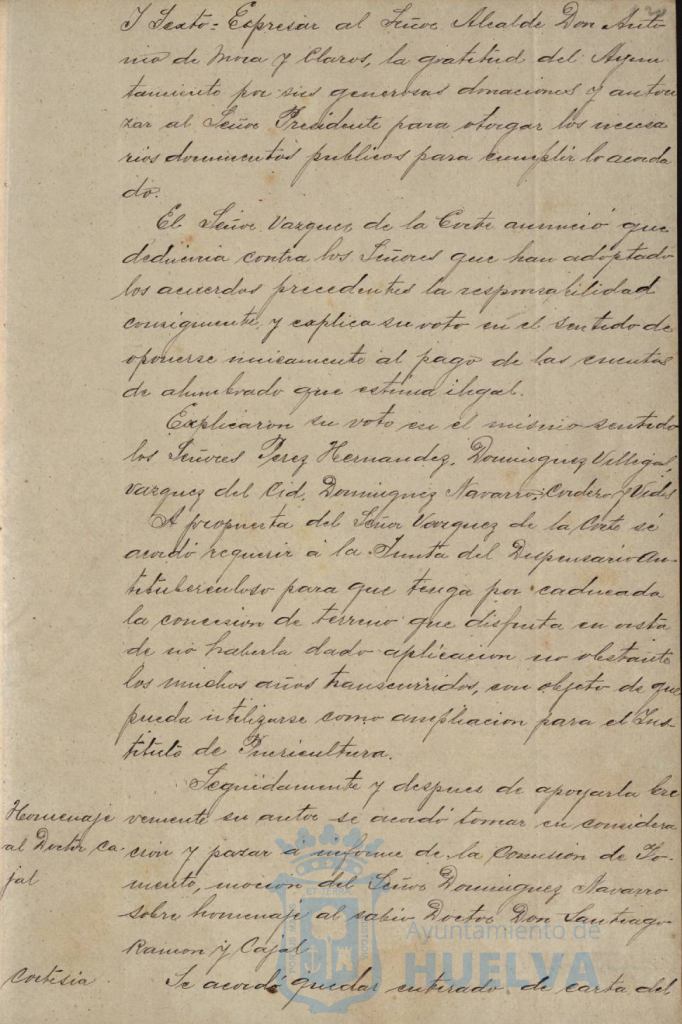 Y Sexto = Expresar al Señor Alcalde Don Anto-
nio de Mora y Claros, la gratitud del Ayun-
tamiento por sus generosas donaciones y autori
zar al Señor Presidente para otorgar los necesa
rios documentos publicos para cumplir lo acorda
do.
El Señor Vazquez de la Corte anunció que
deduciria contra los Señores que han adoptado
los acuerdos precedentes la responsabilidad
consiguiente, y explica su voto en el sentido de
oponerse unicamente al pago de las cuentas
de alumbrado que estima ilegal.
Explicaron su voto en el mismo sentido
los Señores Perez Hernandez, Dominguez Villegas,
Vazquez del Cid, Dominguez Navarro, Cordero y Vides
A propuesta del Señor Vazquez de la Corte se
acordó requerir á la Junta del Dispensario An-
tituberculoso para que tenga por caducada
la concesion de terreno que disfruta en vista
de no haberla dado aplicacion no obstante
los muchos años transcurridos, con objeto de que
pueda utilizarse como ampliacion para el Ins-
tituto de Puericultura.
Seguidamente y despues de apoyarla bre
Homenaje vemente su autor se acordó tomar en considera
al Doctor Ca- cion y pazar á informe de la Comision de Fo-
jal mento, mocion del Señor Dominguez Navarro
sobre homenaje al sabio Doctor Don Santiago
Ramon y Cajal
Cortesia. Se acordó quedar enterado de carta del
Ayuntamiento de
HUELVA